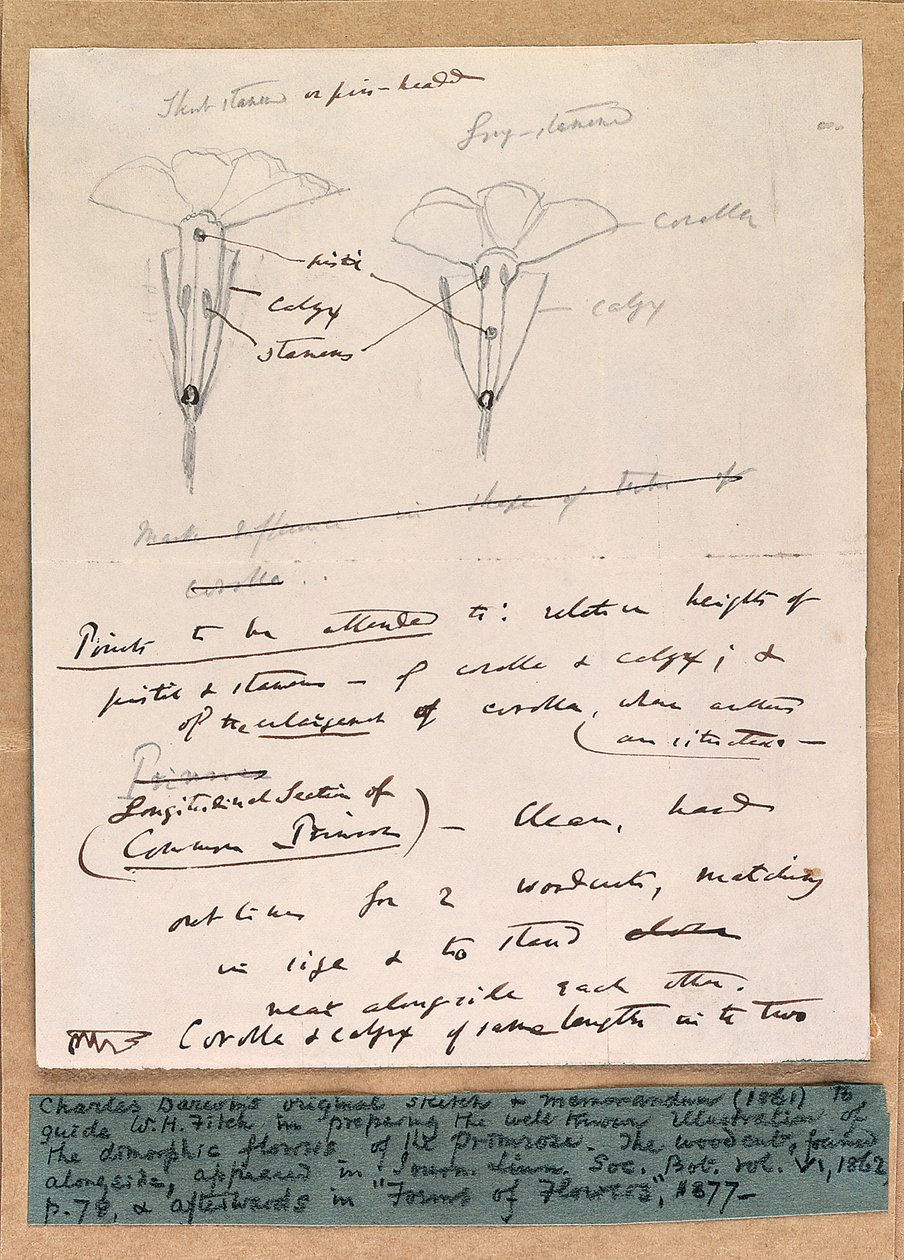 Short-stamened or pin-headed
Long-stamened
corolla
pistil
calyx
calyx
stamens
Mark difference in shape of tube of
corolla ..
Points to be attended to: relative heights of
pistil & stamens – of corolla & calyx; &
of the enlargement of corolla, where anthers
are situated –
Primrose
Longitudinal Section of
(Common Primrose) – Clean, hard
out lines for 2 woodcuts, matching
in size & to stand close
near alongside each other.
Corolla & calyx of same length in the two
Charles Darwin's original sketch & memorandum (1861) to
guide W. H. Fitch in preparing the well known illustration of
the dimorphic flowers of the primrose. The woodcut, found
alongside, appeared in Journ. Linn. Soc. Bot. vol. VI, 1862,
p. 78, & afterwards in "Forms of Flowers", 1877–